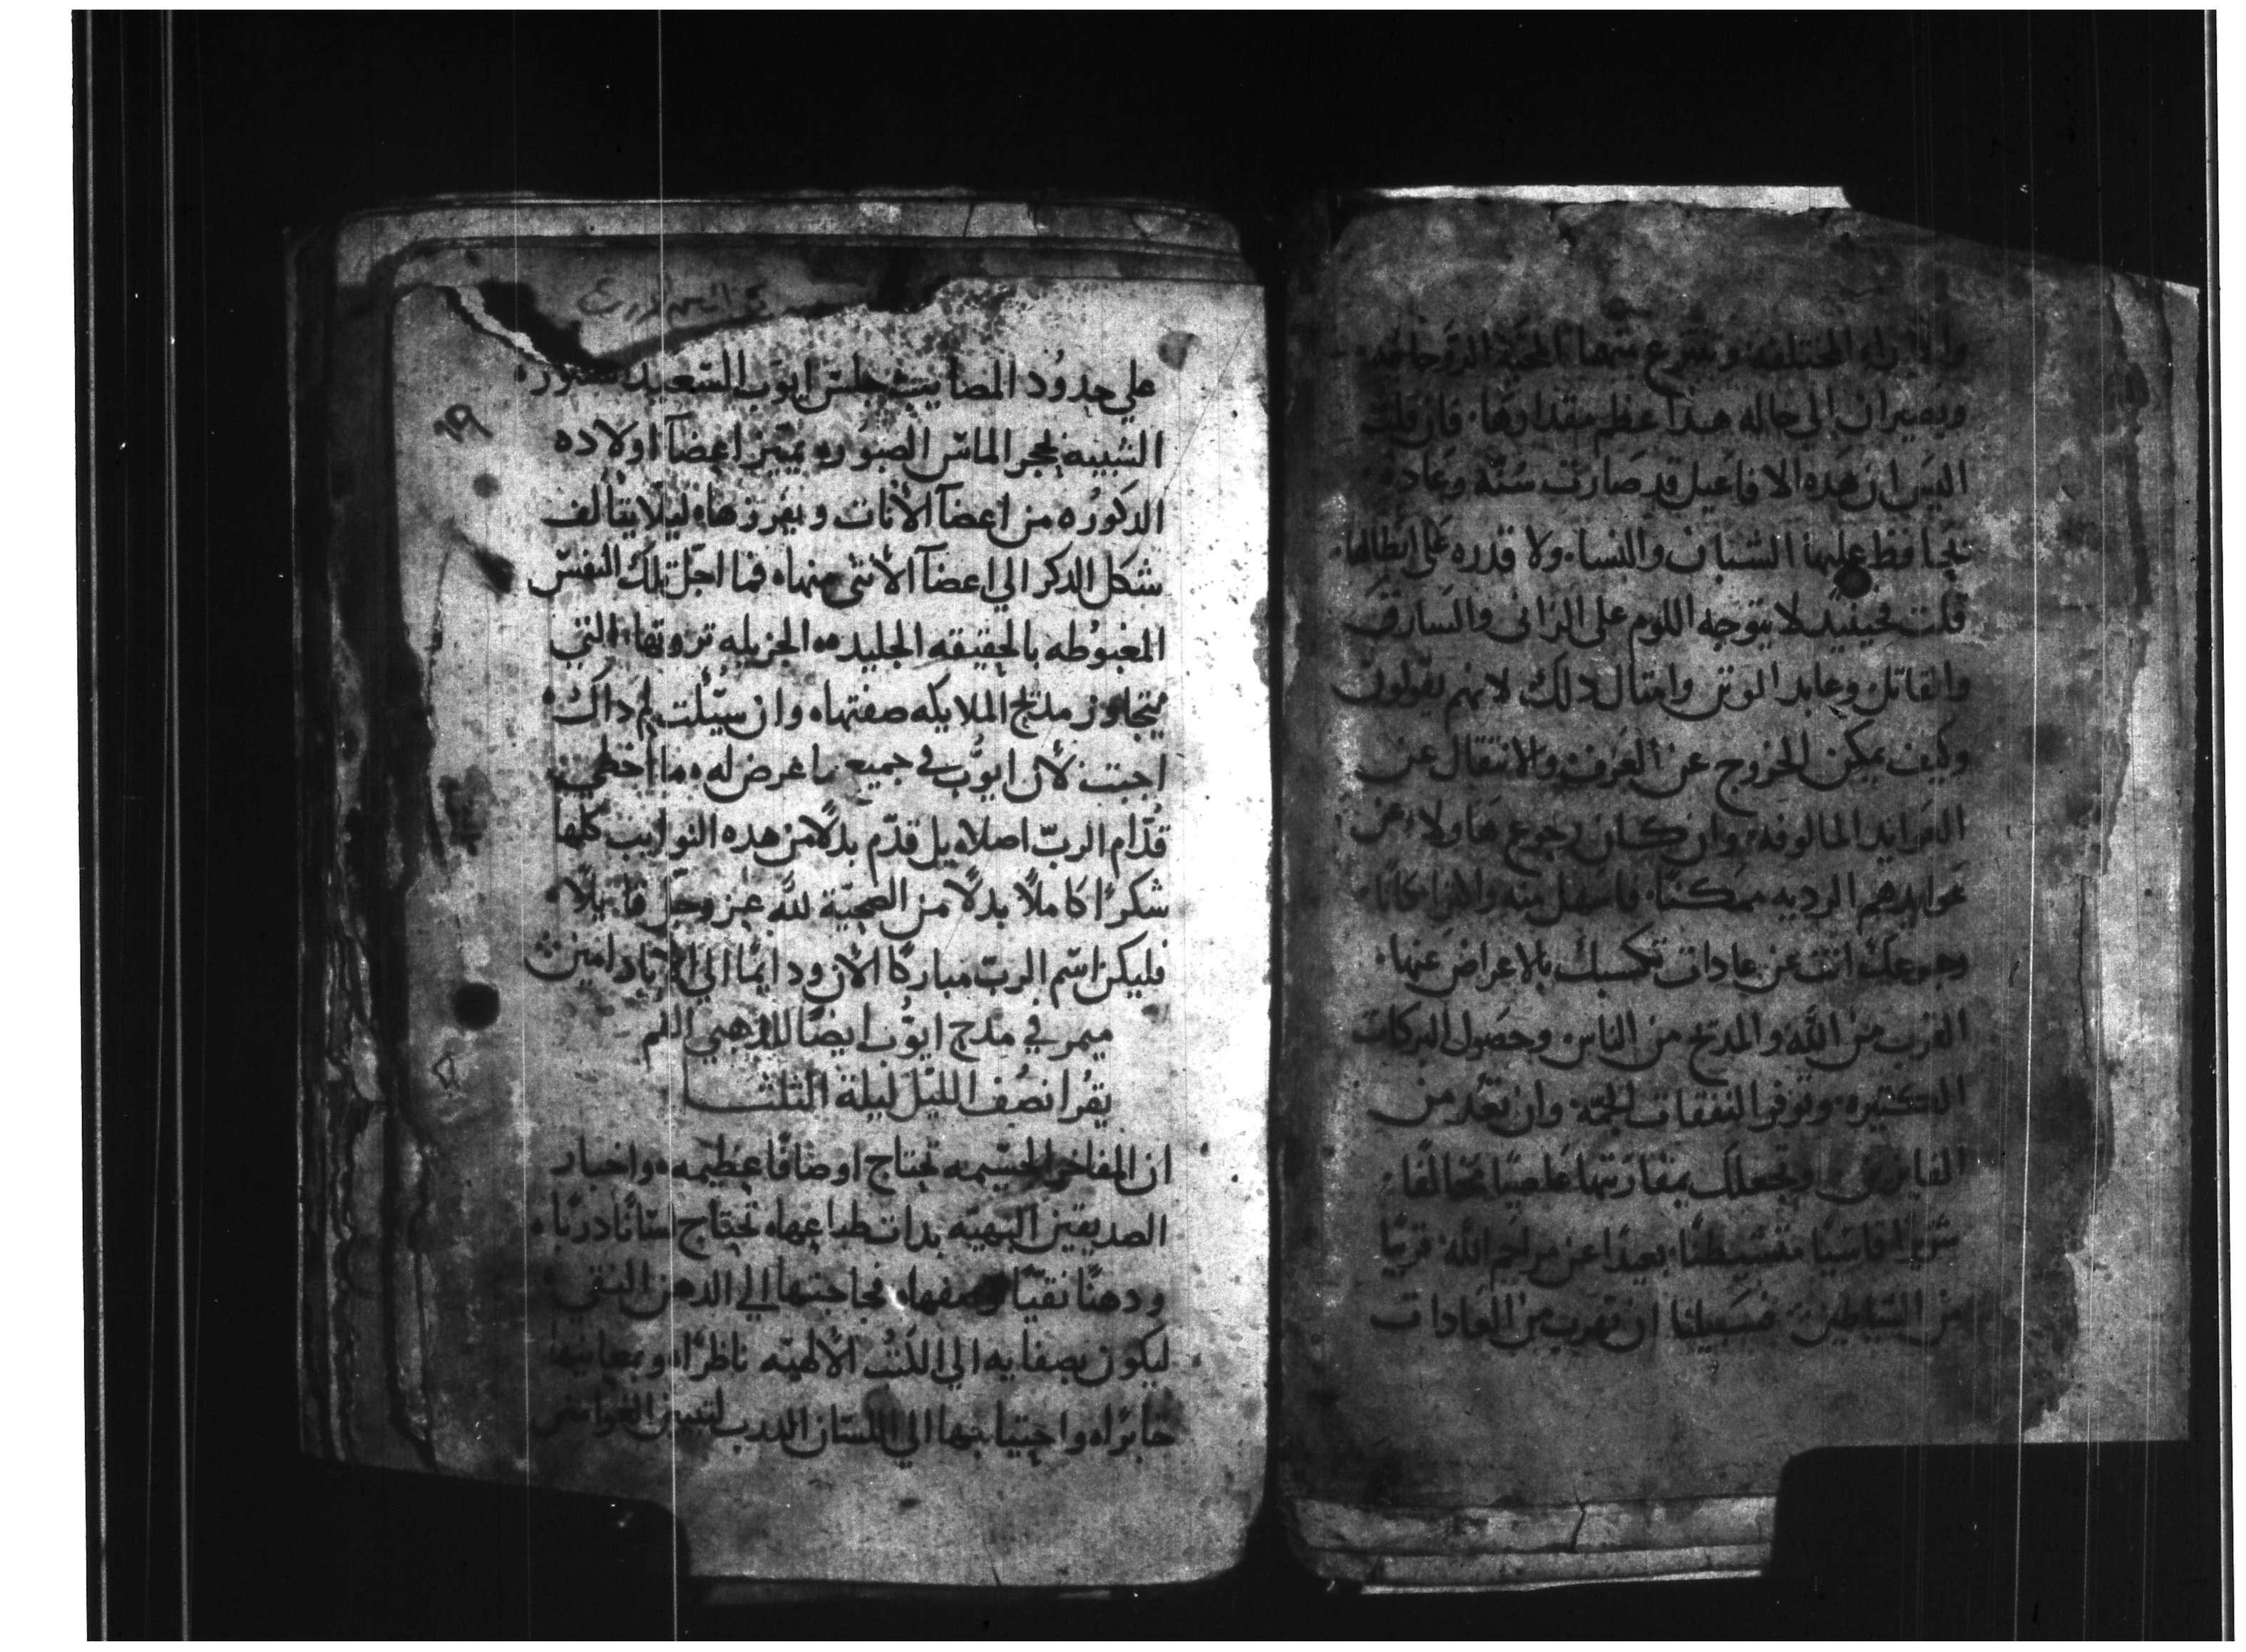 والاراء المختلفه وتنتزع منها المحبة الروحانيه
ويصيران الي حاله هذا عظم مقدارها فان قلت
اليس ان هده الافاعيل قد صارت سنّة وعادة
تحافظ عليها الشبان والنسا ولا قدره على ابطالها
قلت فحينيد لا يتوجه اللوم على الزاني والسارق
والقاتل وعابد الوتن وامتال دلك لانهم يقولون
وكيف يمكن الخروج عن العرف والانتقال عن
العوايد المالوفه وان كان رجوع هاولاء عن
عوايدهم الرديه ممكنًا فاسهل منه والانرا كانا
رجوعك انت عن عادات تكسبك بالاعراض عنها
القرب من الله والمدح من الناس وحصول البركات
الكتيره وتوفر النفقات الجمّة وان تعد من
الفايزين وتجعلك بمقارنتها عاصيًا مخالفًا
شريرا قاسيًا متشيطنًا بعيدا عن مراحم الله قريبًا
من الشياطين فسبيلنا ان نهرب من العادات
علي حدود المصايب جلس ايوب السعيد
الشبيه بحجر الماس الصوره يميز اعضآ اولاده
الدكوره من اعضآ الأنات ويفرزها ليلا يتالف
شكل الدكر الي اعضآ الأنتى منها فما اجلّ تلك النفس
المغبوطه بالحقيقه الجليده الجزيله تروتها التي
يتجاوز مديح الملايكه صفتها وان سيلت لم داك
اجبت لأن ايوب في جميع ما عرض له ما اخطي
قدّام الربّ اصلا بل قدّم بدلًا من هده النوايب كلها
شكرًا كاملًا بدلًا من الصحيّة لله عز وجل قايلًا
فليكن اسم الربّ مباركًا الأن ودايمًا الي الاباد امين
ميمر في مديح ايوّب ايضًا للدهبي الفم
يقرا نصف الليل ليلة الثلثـا
ان المفاخر الجسيمه تحتاج اوصافًا عظيمه واخبار
الصديقين البهيّه بدات طباعها تحتاج لسانًا دربًا
ودهنًا نقيًّا وصفها فحاجتها الي الدهن النقي
ليكون بصفايه الي اللدّت الألهيّه ناظرًا وبمعانيها
خابرًا واحتياجها الي اللسان الدرب لتبيين الغوامض